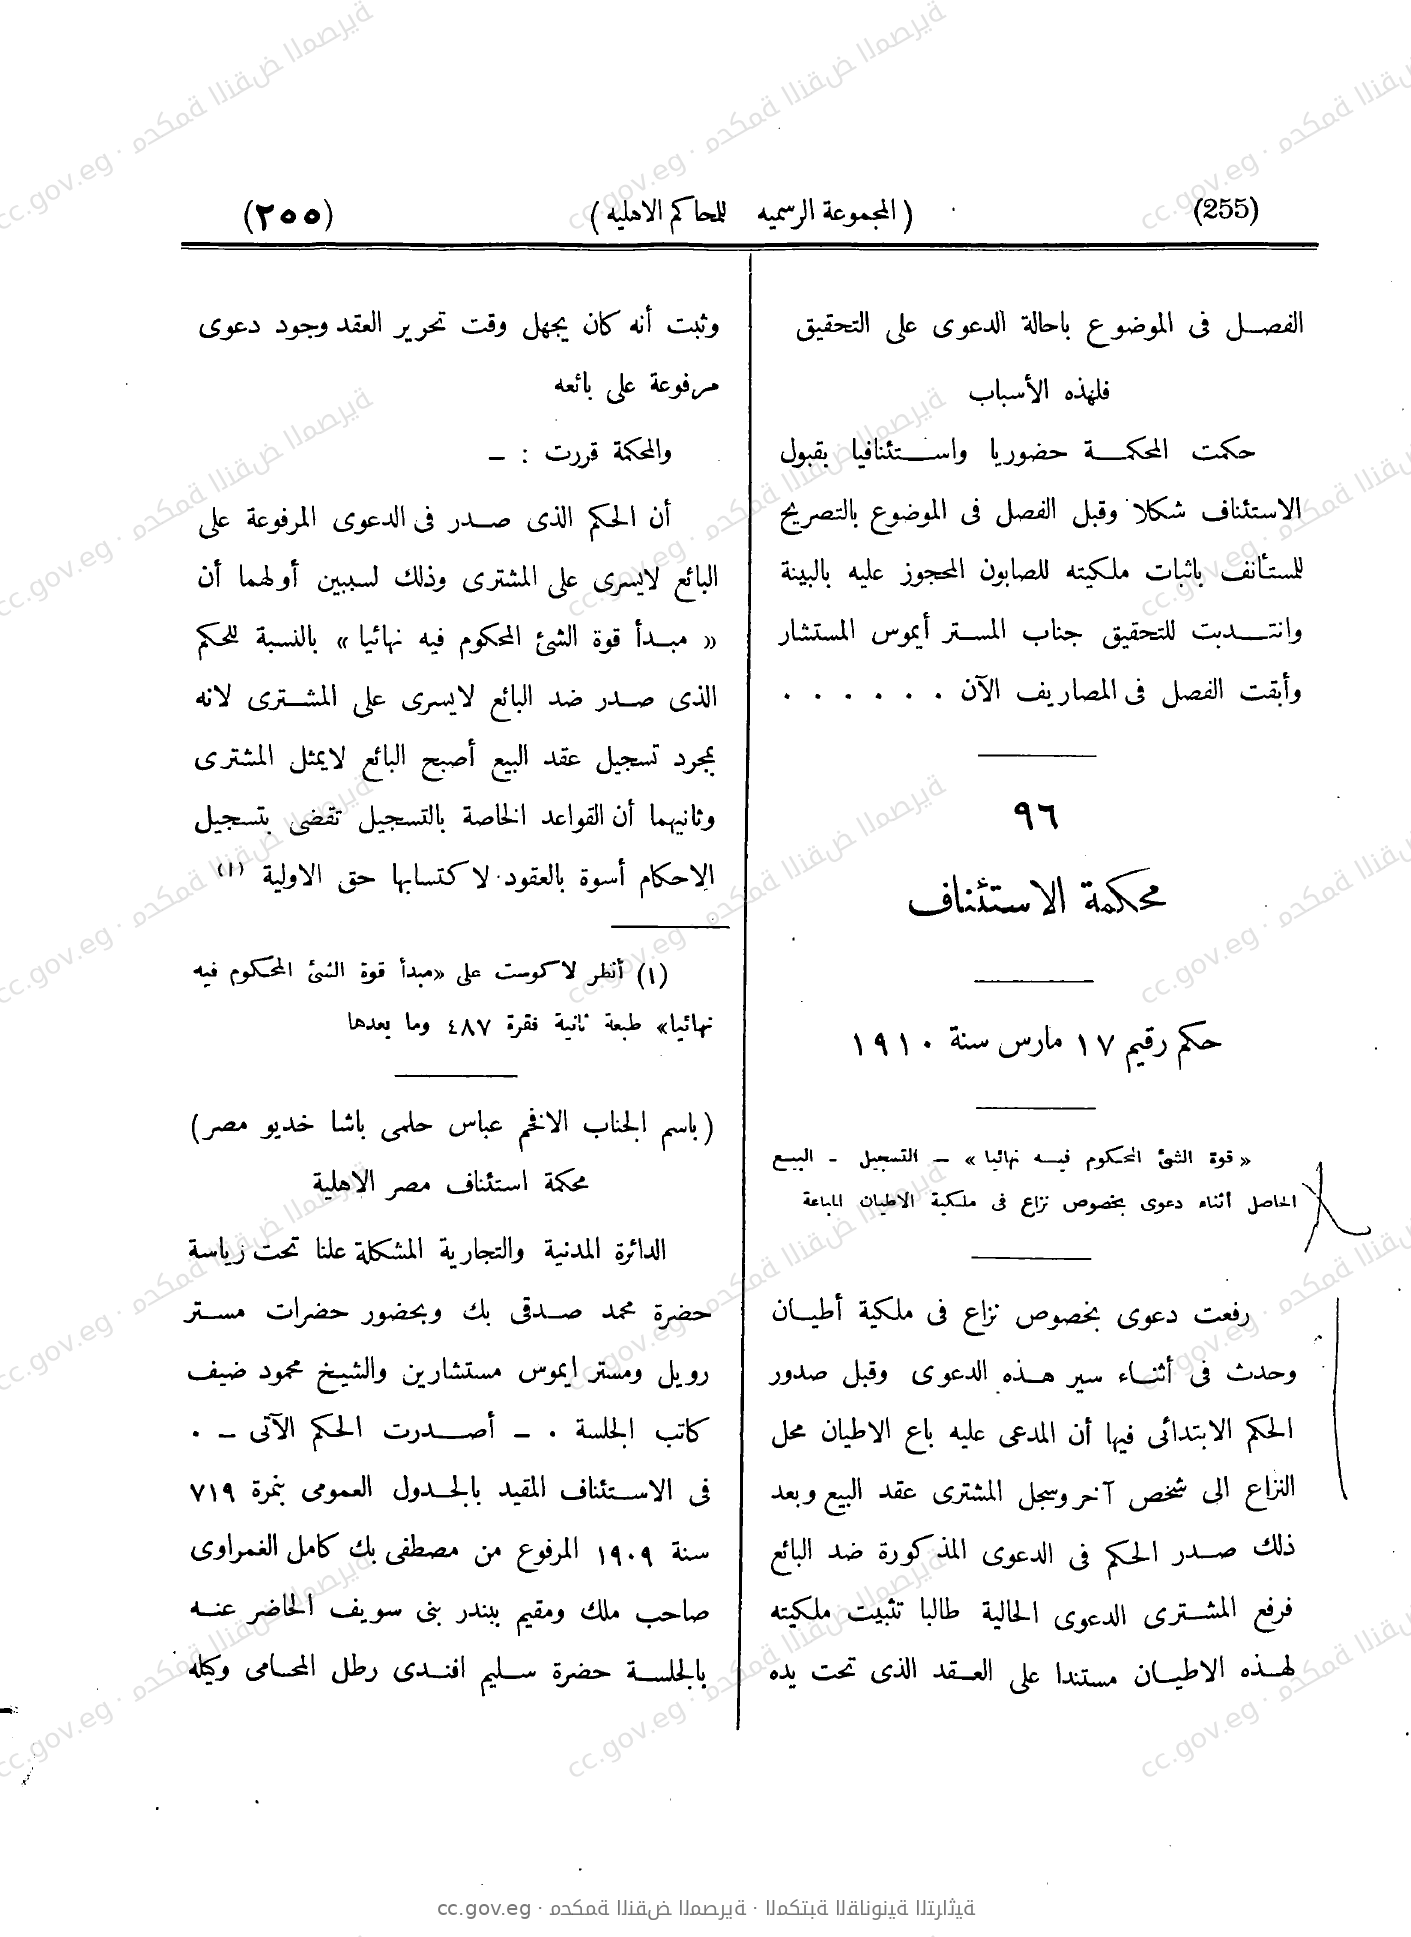 (255)
( المجموعة الرسميه للمحاكم الاهليه )
(٢٥٥)
الفصل فى الموضوع باحالة الدعوى على التحقيق
فلهذه الأسباب
حكمت المحكمة حضوريا واستئنافيا بقبول
الاستئناف شكلا وقبل الفصل فى الموضوع بالتصريح
للمستأنف باثبات ملكيته للصابون المحجوز عليه بالبينة
وانتدبت للتحقيق جناب المستر أيموس المستشار
وأبقت الفصل فى المصاريف الآن . . . . . .
٩٦
محكمة الاستئناف
حكم رقيم ١٧ مارس سنة ١٩١٠
« قوة الشئ المحكوم فيه نهائيا » – التسجيل - البيع
الحاصل أثناء دعوى بخصوص نزاع فى ملكية الاطيان المباعة
رفعت دعوى بخصوص نزاع فى ملكية أطيان
وحدث فى أثناء سير هذه الدعوى وقبل صدور
الحكم الابتدائى فيها أن المدعى عليه باع الاطيان محل
النزاع الى شخص آخر وسجل المشترى عقد البيع وبعد
ذلك صدر الحكم فى الدعوى المذكورة ضد البائع
فرفع المشترى الدعوى الحالية طالبا تثبيت ملكيته
لهذه الاطيان مستندا على العقد الذى تحت يده
وثبت أنه كان يجهل وقت تحرير العقد وجود دعوى
مرفوعة على بائعه
والمحكمة قررت : –
أن الحكم الذى صدر فى الدعوى المرفوعة على
البائع لايسرى على المشترى وذلك لسببين أولهما أن
« مبدأ قوة الشئ المحكوم فيه نهائيا » بالنسبة للحكم
الذى صدر ضد البائع لايسرى على المشترى لانه
بمجرد تسجيل عقد البيع أصبح البائع لايمثل المشترى
وثانيهما أن القواعد الخاصة بالتسجيل تقضى بتسجيل
الاحكام أسوة بالعقود لاكتسابها حق الاولية (١)
(١) أنظر لاكوست على «مبدأ قوة الشئ المحكوم فيه
نهائيا» طبعة ثانية فقرة ٤٨٧ وما بعدها
(باسم الجناب الافخم عباس حلمى باشا خديو مصر)
محكمة استئناف مصر الاهلية
الدائرة المدنية والتجارية المشكلة علنا تحت رياسة
حضرة محمد صدقى بك وبحضور حضرات مستر
رويل ومستر ايموس مستشارين والشيخ محمود ضيف
كاتب الجلسة . – أصدرت الحكم الآتى – .
فى الاستئناف المقيد بالجدول العمومى بنمرة ٧١٩
سنة ١٩٠٩ المرفوع من مصطفى بك كامل الغمراوى
صاحب ملك ومقيم ببندر بنى سويف الحاضر عنه
بالجلسة حضرة سليم افندى رطل المحامى وكيله
cc.gov.eg · محكمة النقض المصرية · المكتبة القانونية التراثية